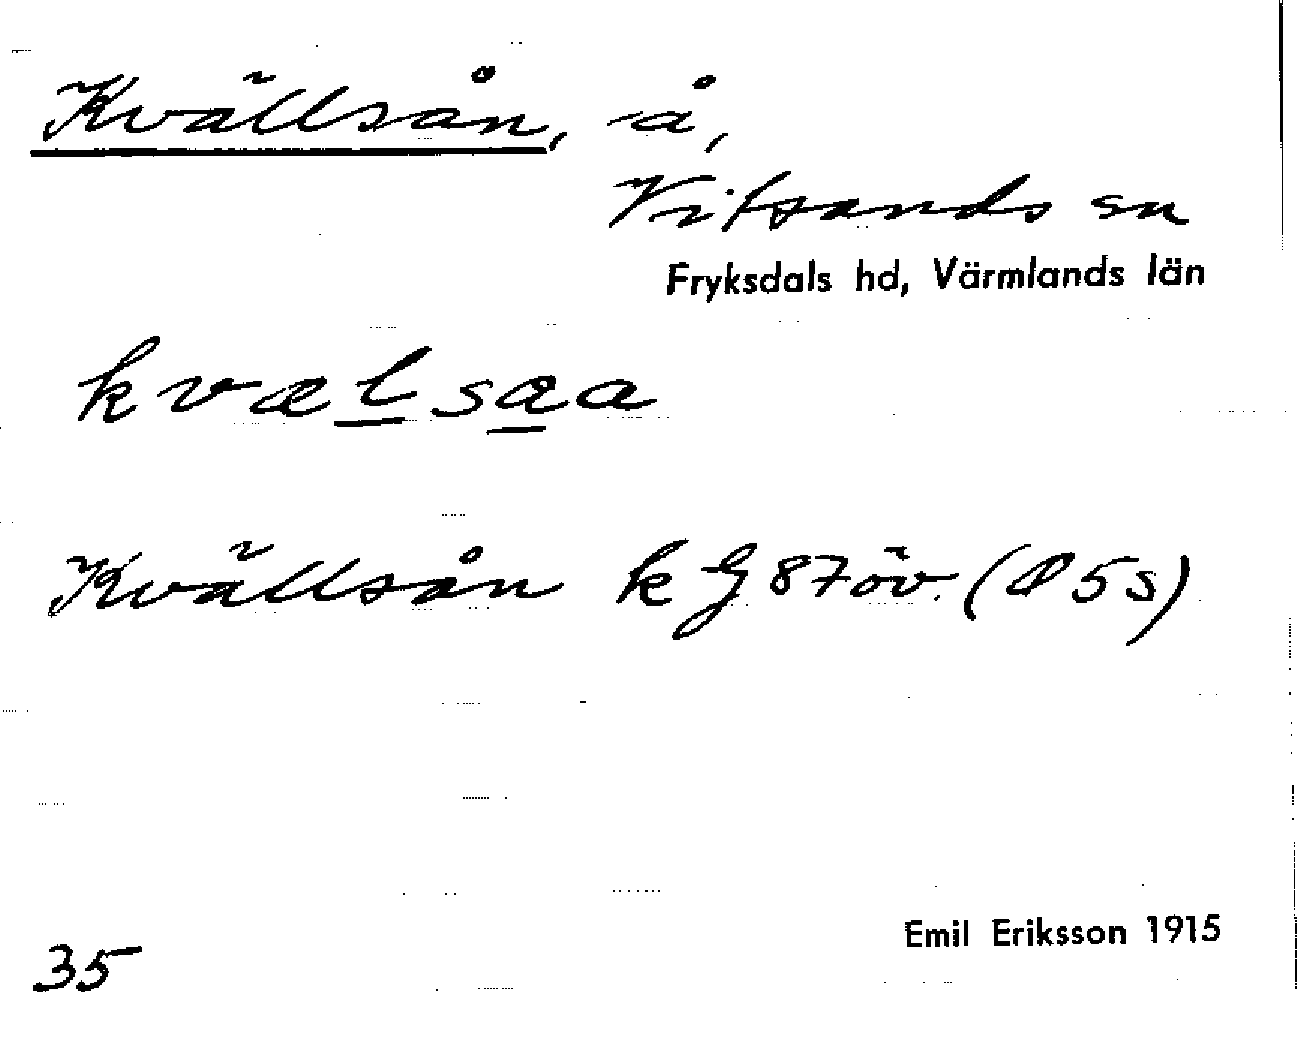 Kvällsån, å,
Vitsands sn
Fryksdals hd, Värmlands län
kvælsaa
Kvällsån k G 87 öv. ( 5 s)
Emil Eriksson 1915
35